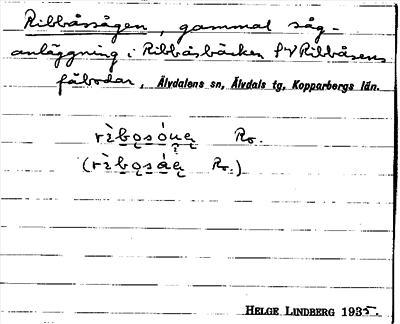 Ribbåssågen, gammal såg-
anläggning i Ribbåsbäcken SV Ribbåsens
fäbodar, Älvdalens sn, Älvdals tg, Kopparbergs län.
Ro.
Ro.)
HELGE LINDBERG 1935.